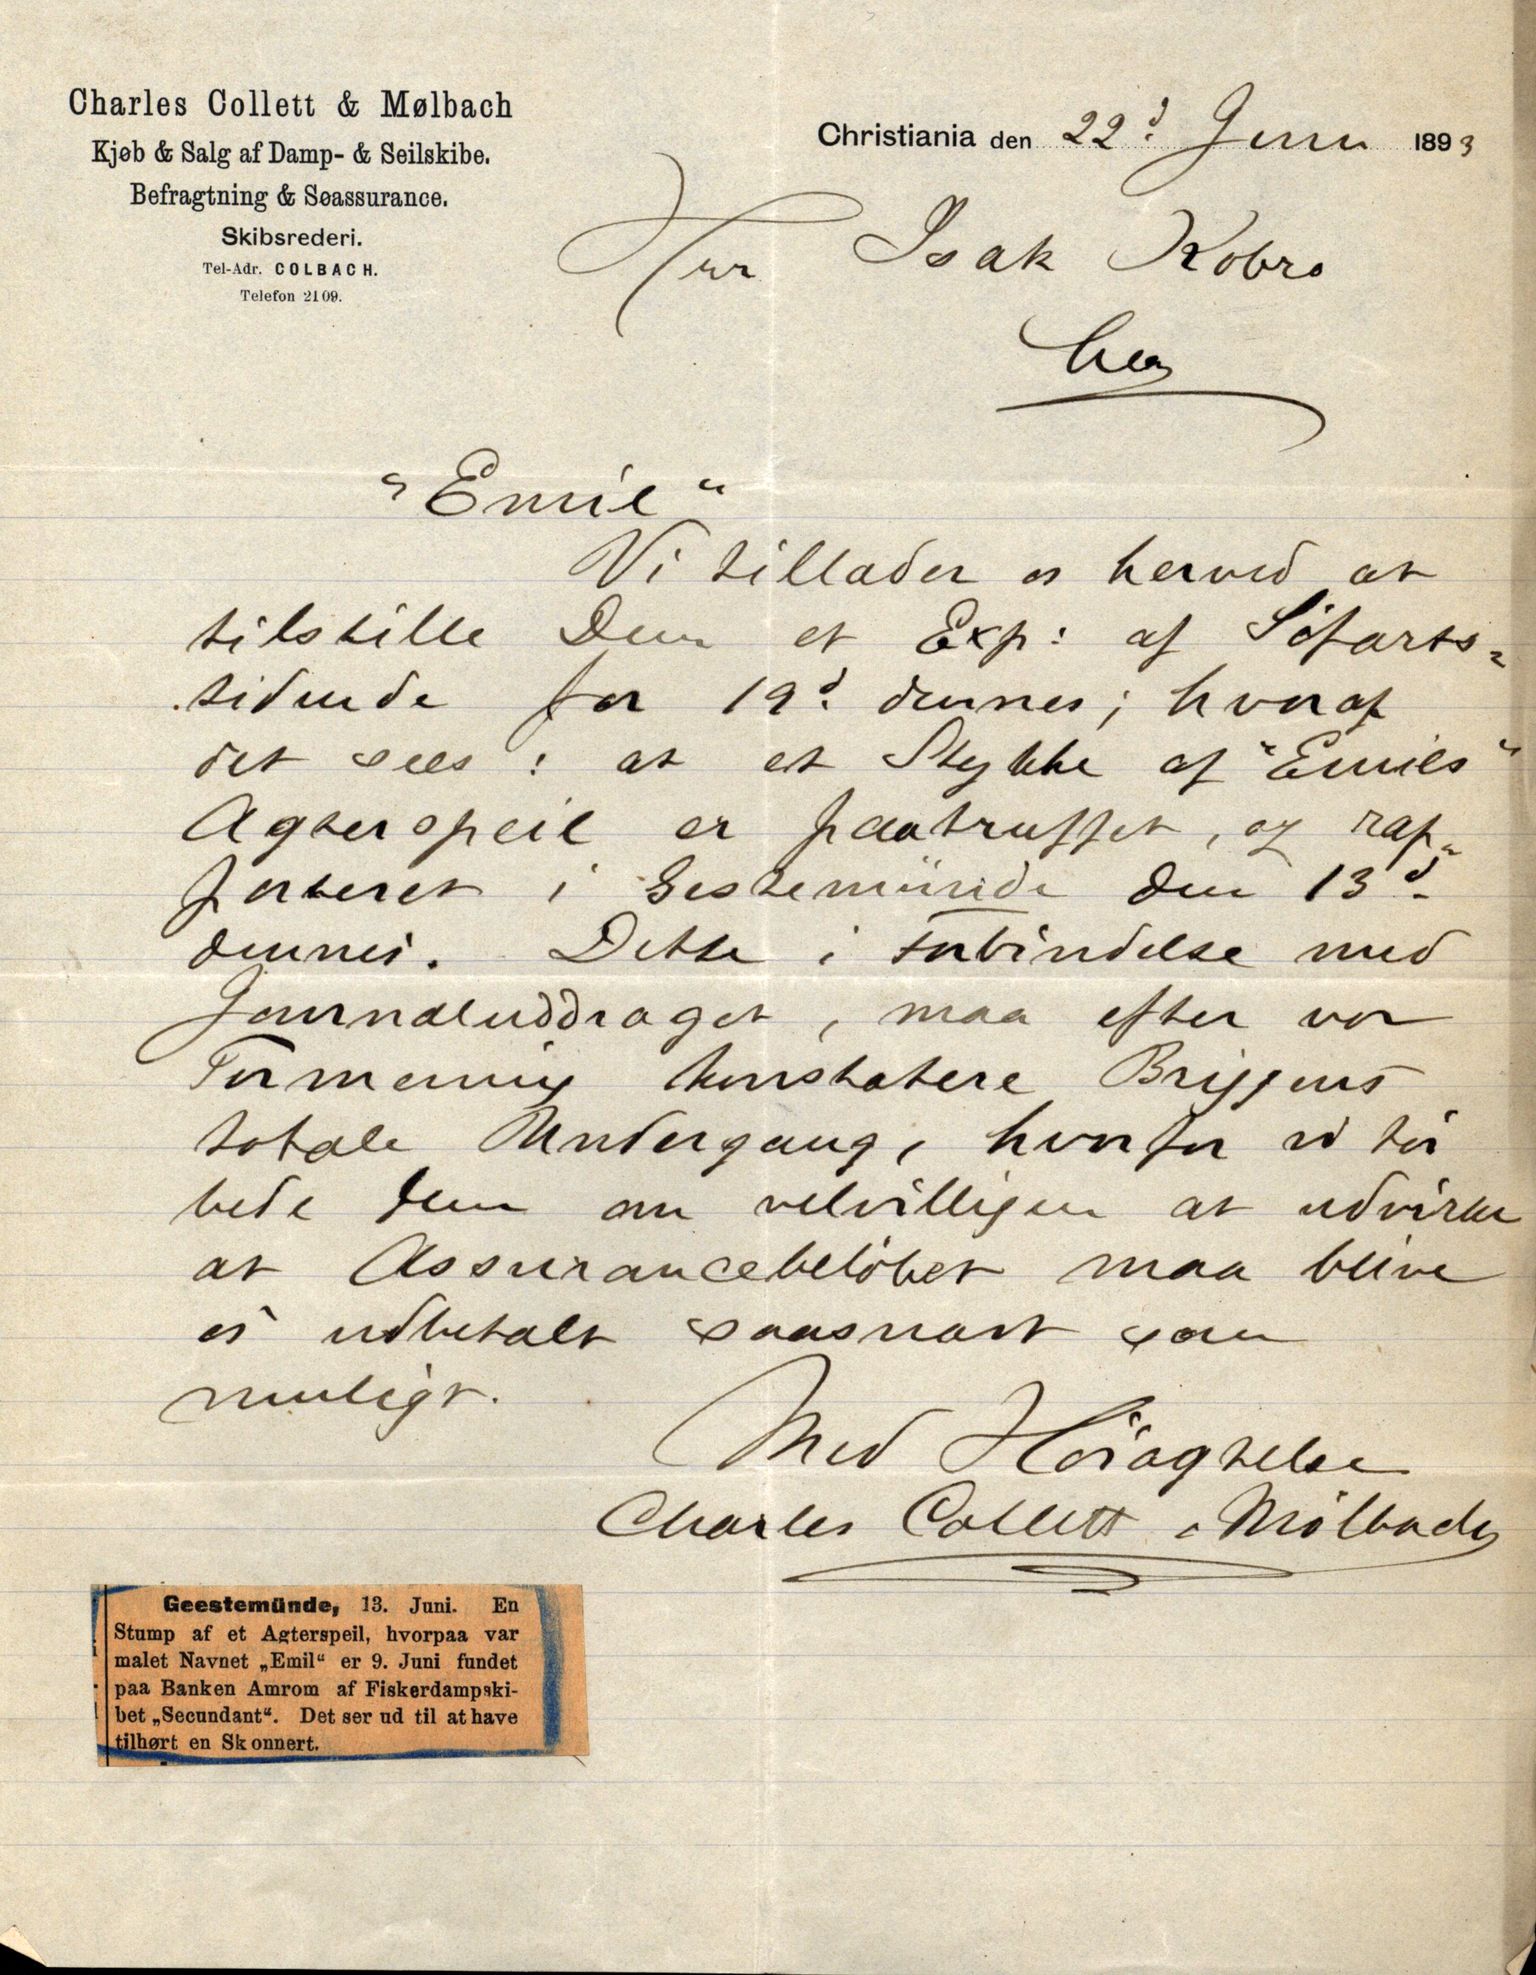 Charles Collett & Mølbach
Kjøb & Salg af Damp- & Seilskibe.
Befragtning & Søassurance.
Skibsrederi.
Tel-Adr. COLBACH.
Telefon 2109.
Christiania den 22d. Juni 1893
Herr Isak Kobro
Her
"Emil"
Vi tillader os herved at
tilstille Dem et Exp: af Søfarts-
tidende for 19d. dennes; hvoraf
det sees : at et Stykke af "Emils"
Agterspeil er paatruffet, og rap-
porteret i Gestemünde den 13d.
dennes. Dette i Forbindelse med
Journaluddraget, maa efter vor
Formening konstatere Briggens
totale Undergang, hvorfor vi tør
bede Dem om velvilligen at udvirke
at Assurancebeløbet maa blive
os udbetalt saasnart som
muligt.
Med Høiagtelse
Charles Collett & Mølbach
Geestemünde, 13. Juni. En
Stump af et Agterspeil, hvorpaa var
malet Navnet „Emil“ er 9. Juni fundet
paa Banken Amrom af Fiskerdampski-
bet „Secundant“. Det ser ud til at have
tilhørt en Skonnert.